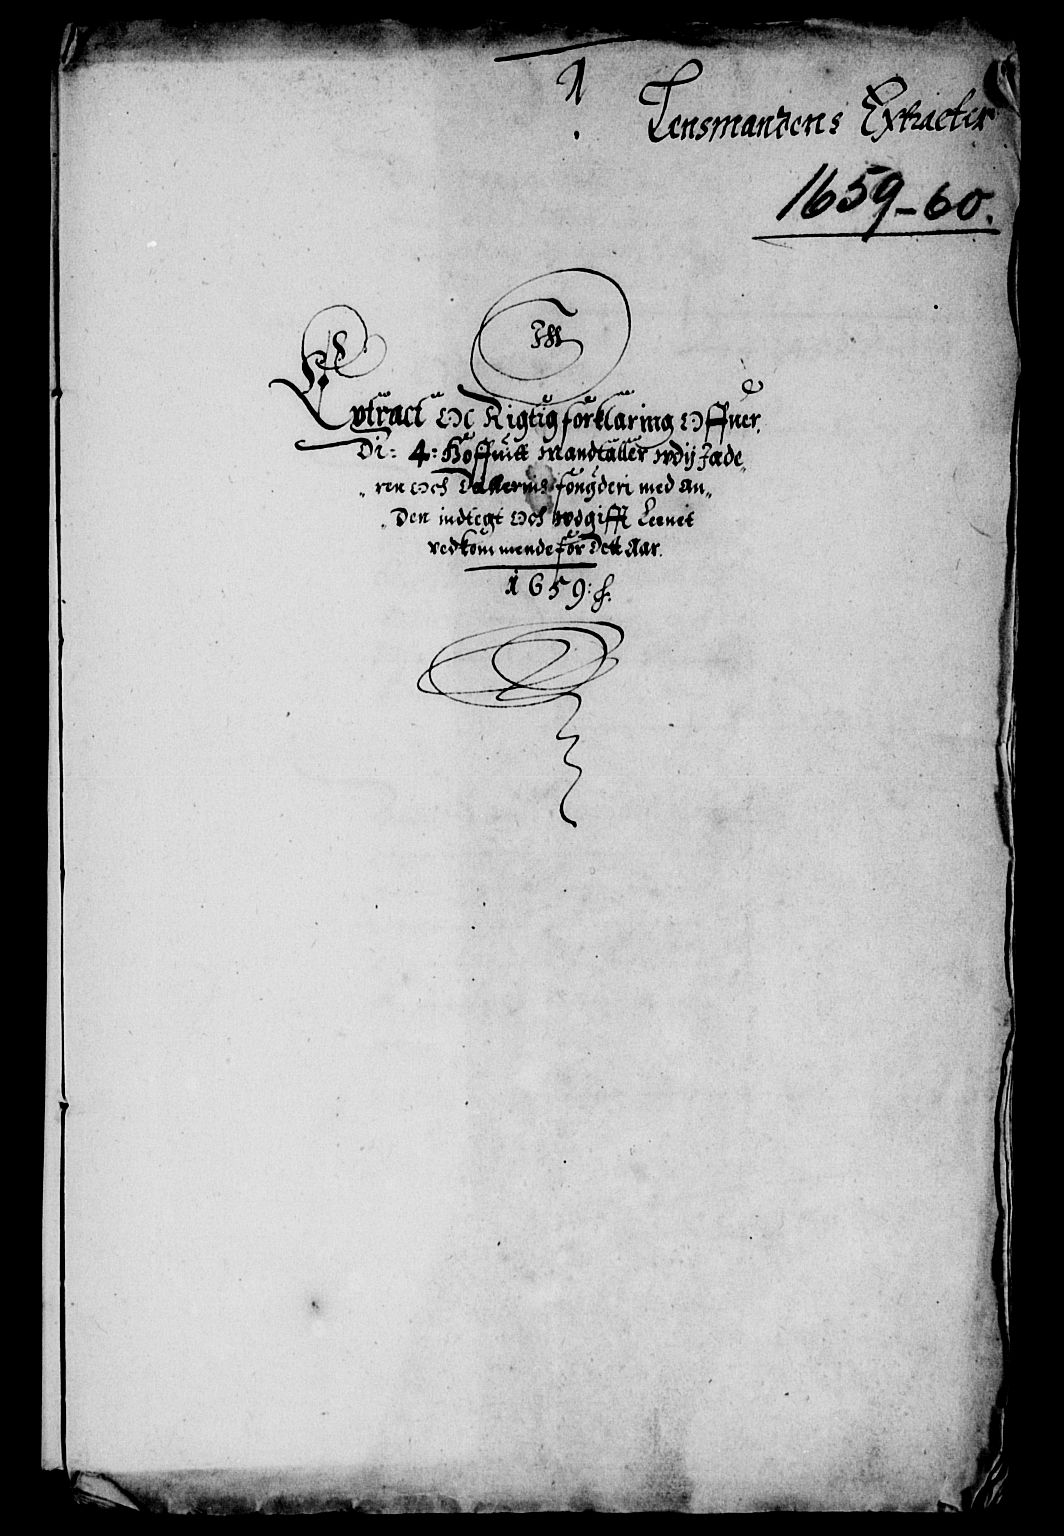 1.
Lensmandens Extracter
1659-60.
Extract Och Rigtig forklaring Offuer
Di: 4: Hoffuitt mandtaller wdij Jæde„
„ren Och Dallernis fougderi med an„
„Den indtegt Och wdgifft Leenet
vedkommende for Dett Aar.
1659: